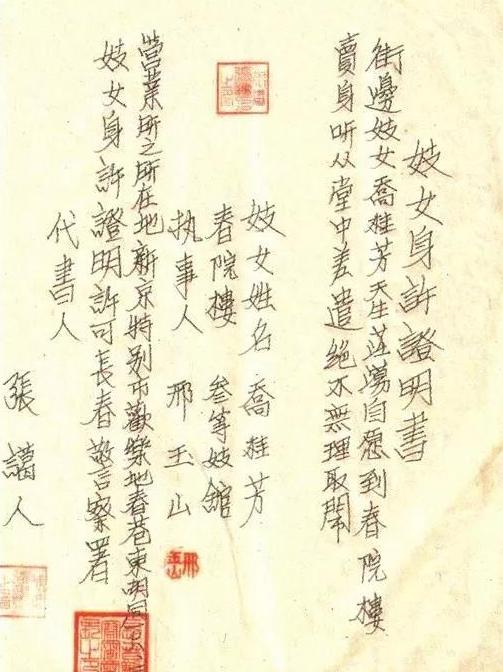 妓女身許證明書
街邊妓女喬桂芳天生淫蕩自愿到春院樓
賣身听从堂中差遣絕不無理取鬧
妓女姓名 喬桂芳
春院樓 叁等妓舘
执事人 邢玉山
營業所之所在地新京特别市歡樂地春巷東胡同
妓女身許證明許可長春警察署
代書人
張 人